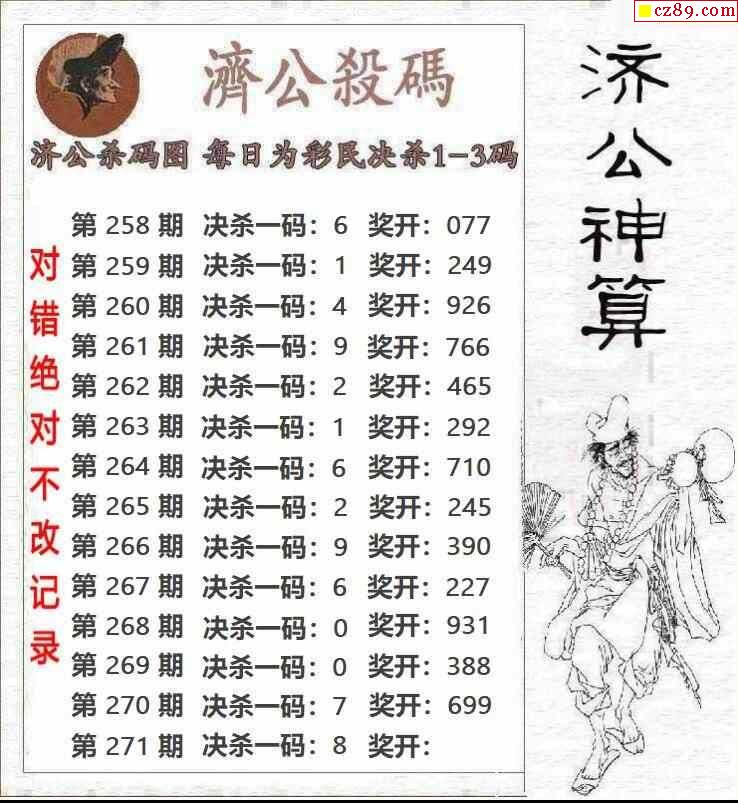 cz89.com
濟公殺碼
济公杀码图 每日为彩民决杀1-3码
第 258 期 决杀一码：6 奖开：077
第 259 期 决杀一码：1 奖开：249
第 260 期 决杀一码：4 奖开：926
第 261 期 决杀一码：9 奖开：766
第 262 期 决杀一码：2 奖开：465
第 263 期 决杀一码：1 奖开：292
第 264 期 决杀一码：6 奖开：710
第 265 期 决杀一码：2 奖开：245
第 266 期 决杀一码：9 奖开：390
第 267 期 决杀一码：6 奖开：227
第 268 期 决杀一码：0 奖开：931
第 269 期 决杀一码：0 奖开：388
第 270 期 决杀一码：7 奖开：699
第 271 期 决杀一码：8 奖开：
对错绝对不改记录
济公神算